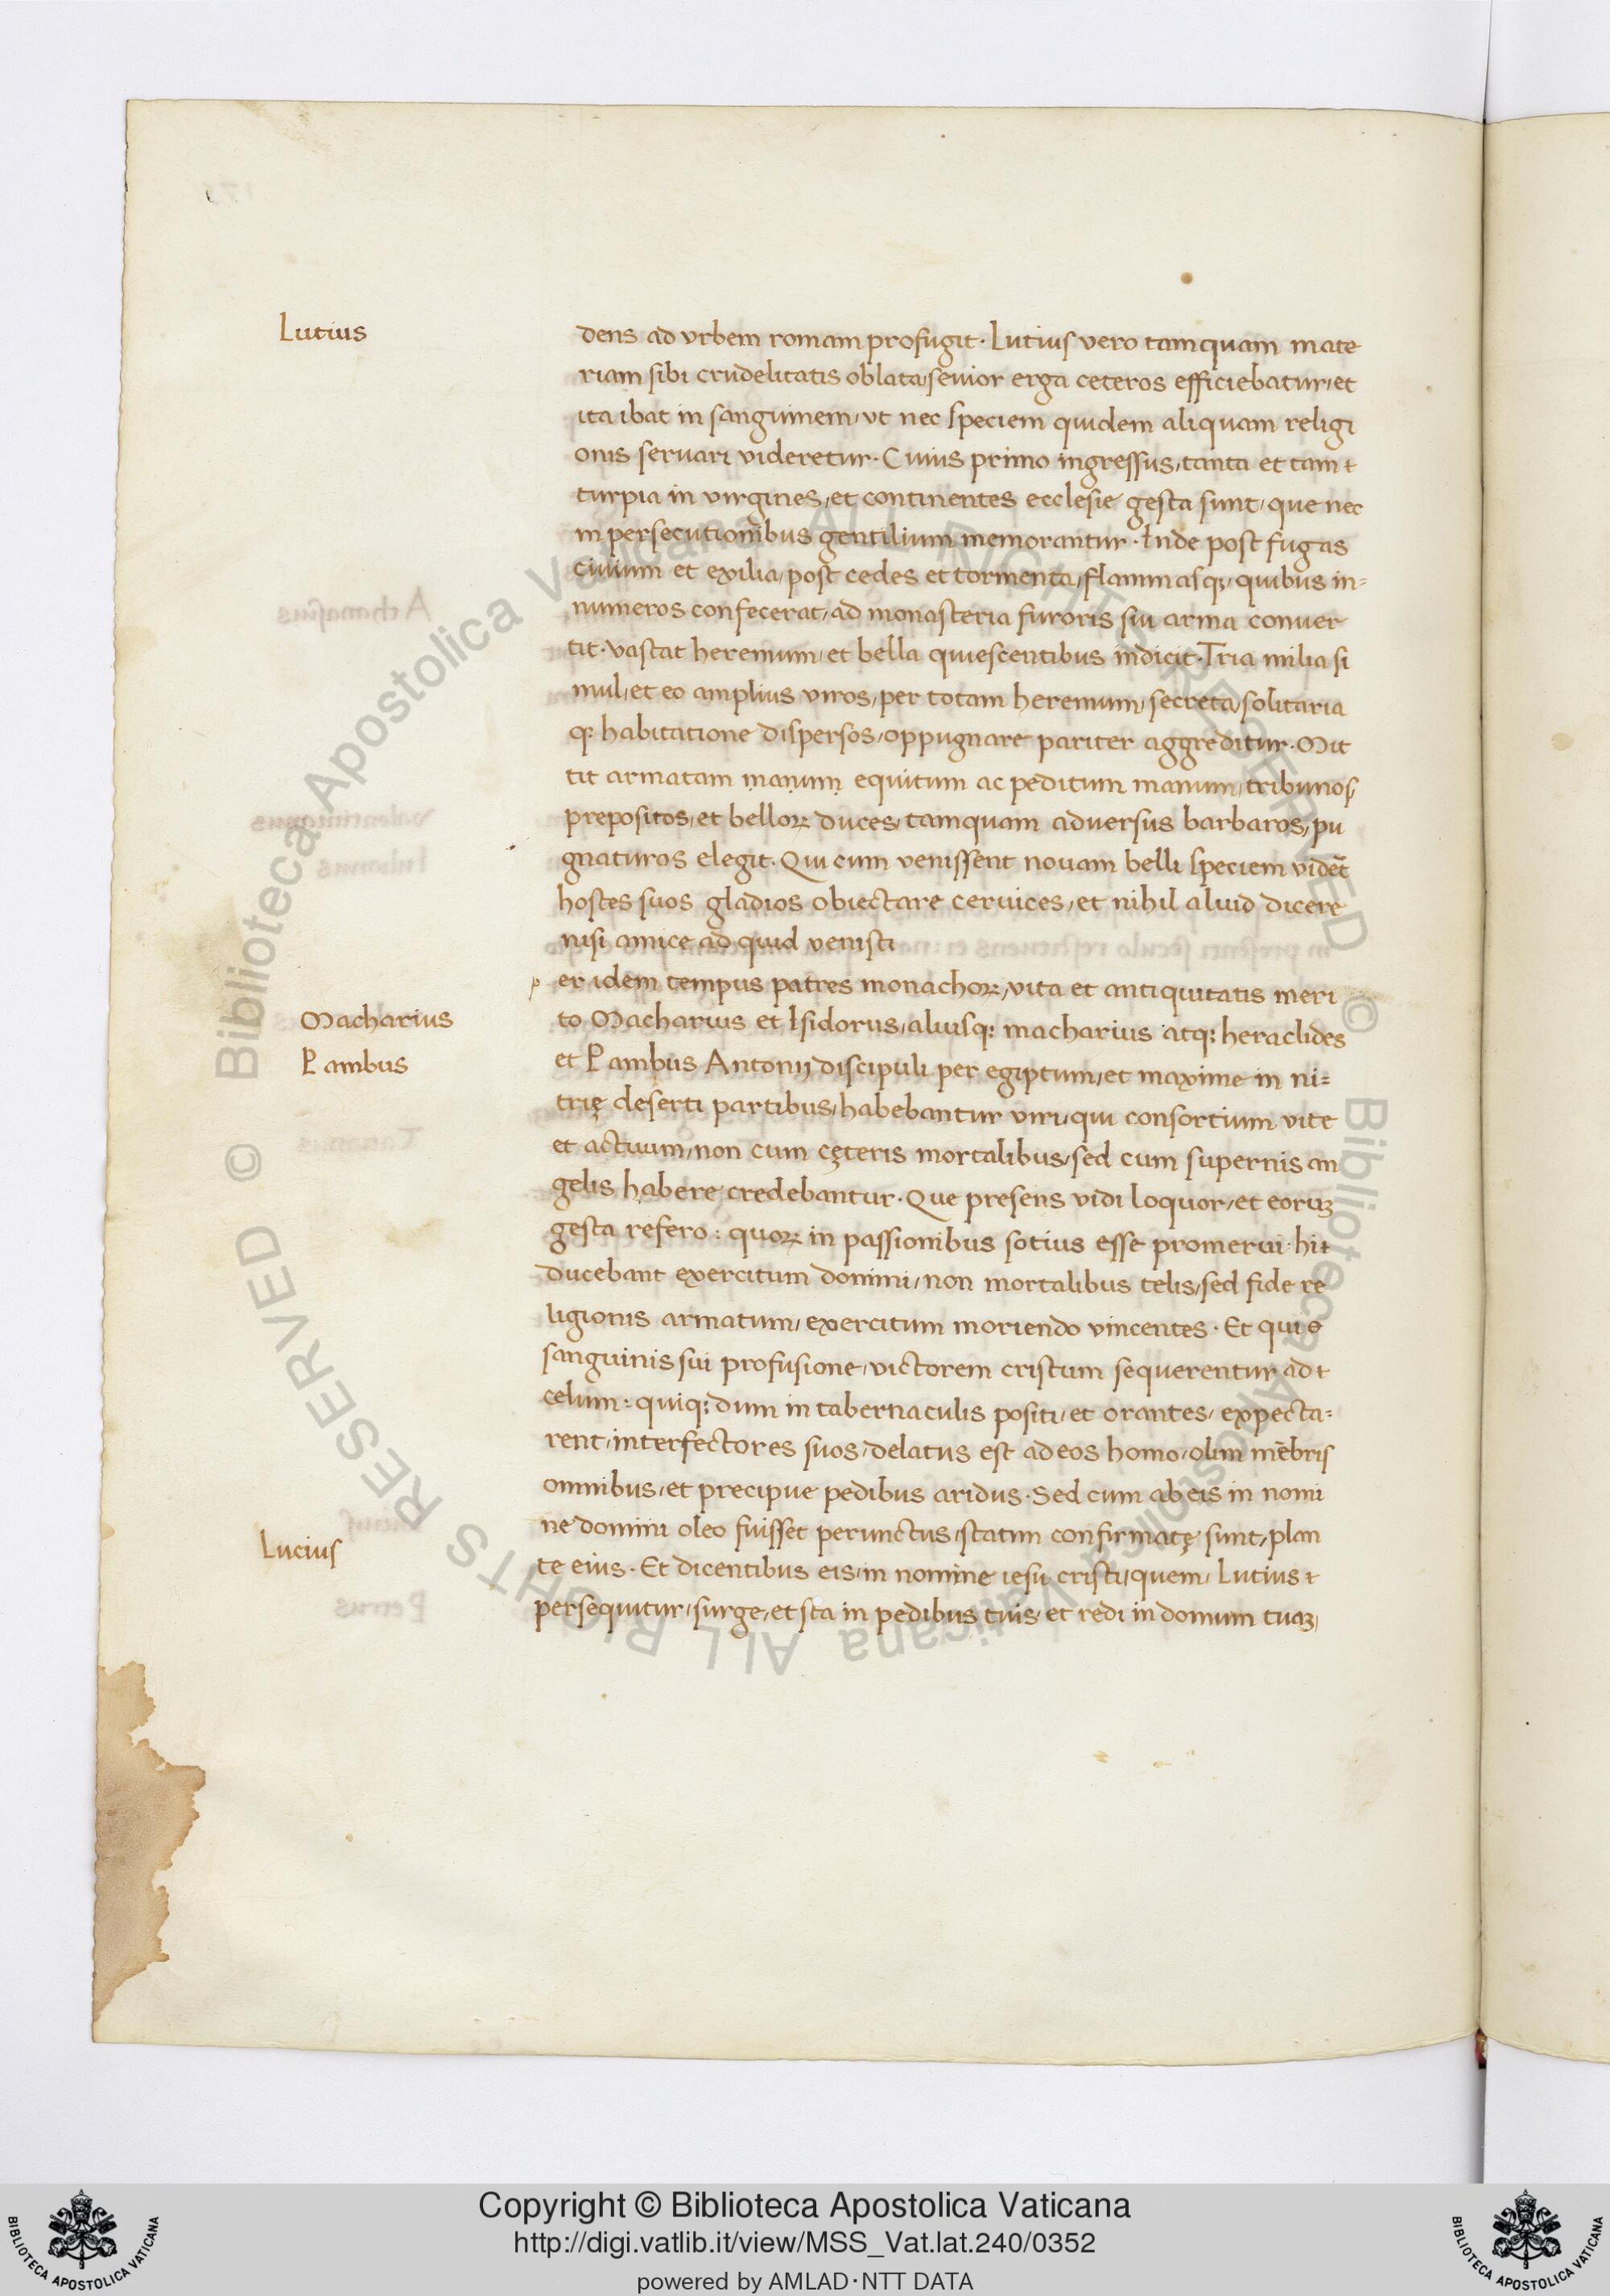 Lutius
dens ad vrbem romam profugit. Lutius vero tamquam mate
riam sibi crudelitatis oblata, sevior erga ceteros efficiebatur, et
ita ibat in sanguinem, vt nec speciem quidem aliquam religi
onis servari videretur. Cuius primo ingressus, tanta et tam
turpia in virgines, et continentes ecclesie gesta sunt, que nec
in persecutionibus gentilium memorantur. Inde post fugas
civium et exilia, post cedes et tormenta, flammasq;, quibus in=
numeros confecerat, ad monasteria furoris sui arma conver
tit. vastat heremum, et bella quiescentibus indicit. Tria milia si
mul, et eo amplius viros, per totam heremum, secreta, solitaria
q; habitatione dispersos, oppugnare pariter aggreditur. Mit
tit armatam manum equitum ac peditum manum, tribunos,
prepositos, et belloꝝ duces, tamquam adversus barbaros, pu
gnaturos elegit. Qui cum venissent novam belli speciem vidēt
hostes suos gladios obiectare cervices, et nihil aliud dicere
nisi amice ad quid venisti
p er idem tempus patres monachoꝝ, vita et antiquitatis meri
Macharius
to Macharius et Isidorus, aliusq; macharius atq; heraclides
Pambus
et Pambus Antonij discipuli per egiptum, et maxime in ni=
trię deserti partibus, habebantur viri, qui consortium vite
et actuum, non cum cęteris mortalibus, sed cum supernis an
gelis habere credebantur. Que presens vidi loquor, et eoruꝫ
gesta refero: quoꝝ in passionibus sotius esse promerui. hi
ducebant exercitum domini, non mortalibus telis, sed fide re
ligionis armatum, exercitum moriendo vincentes. Et qui
sanguinis sui profusione, victorem cristum sequerentur ad
celum: quiq; dum in tabernaculis positi, et orantes, expecta=
rent, interfectores suos, delatus est ad eos homo, olim mēbris
omnibus, et precipue pedibus aridus. Sed cum ab eis in nomi
ne domini oleo fuisset perunctus, statim confirmatę sunt, plan
Lucius
te eius. Et dicentibus eis, in nomine iesu cristi, quem, Lutius
persequitur, surge, et sta in pedibus tuis, et redi in domum tuaꝫ,
© Biblioteca Apostolica Vaticana ALL RIGHTS RESERVED © Biblioteca Apostolica Vaticana ALL RIGHTS RESERVED
Copyright © Biblioteca Apostolica Vaticana
http://digi.vatlib.it/view/MSS_Vat.lat.240/0352
powered by AMLAD·NTT DATA
BIBLIOTECA APOSTOLICA VATICANA
BIBLIOTECA APOSTOLICA VATICANA